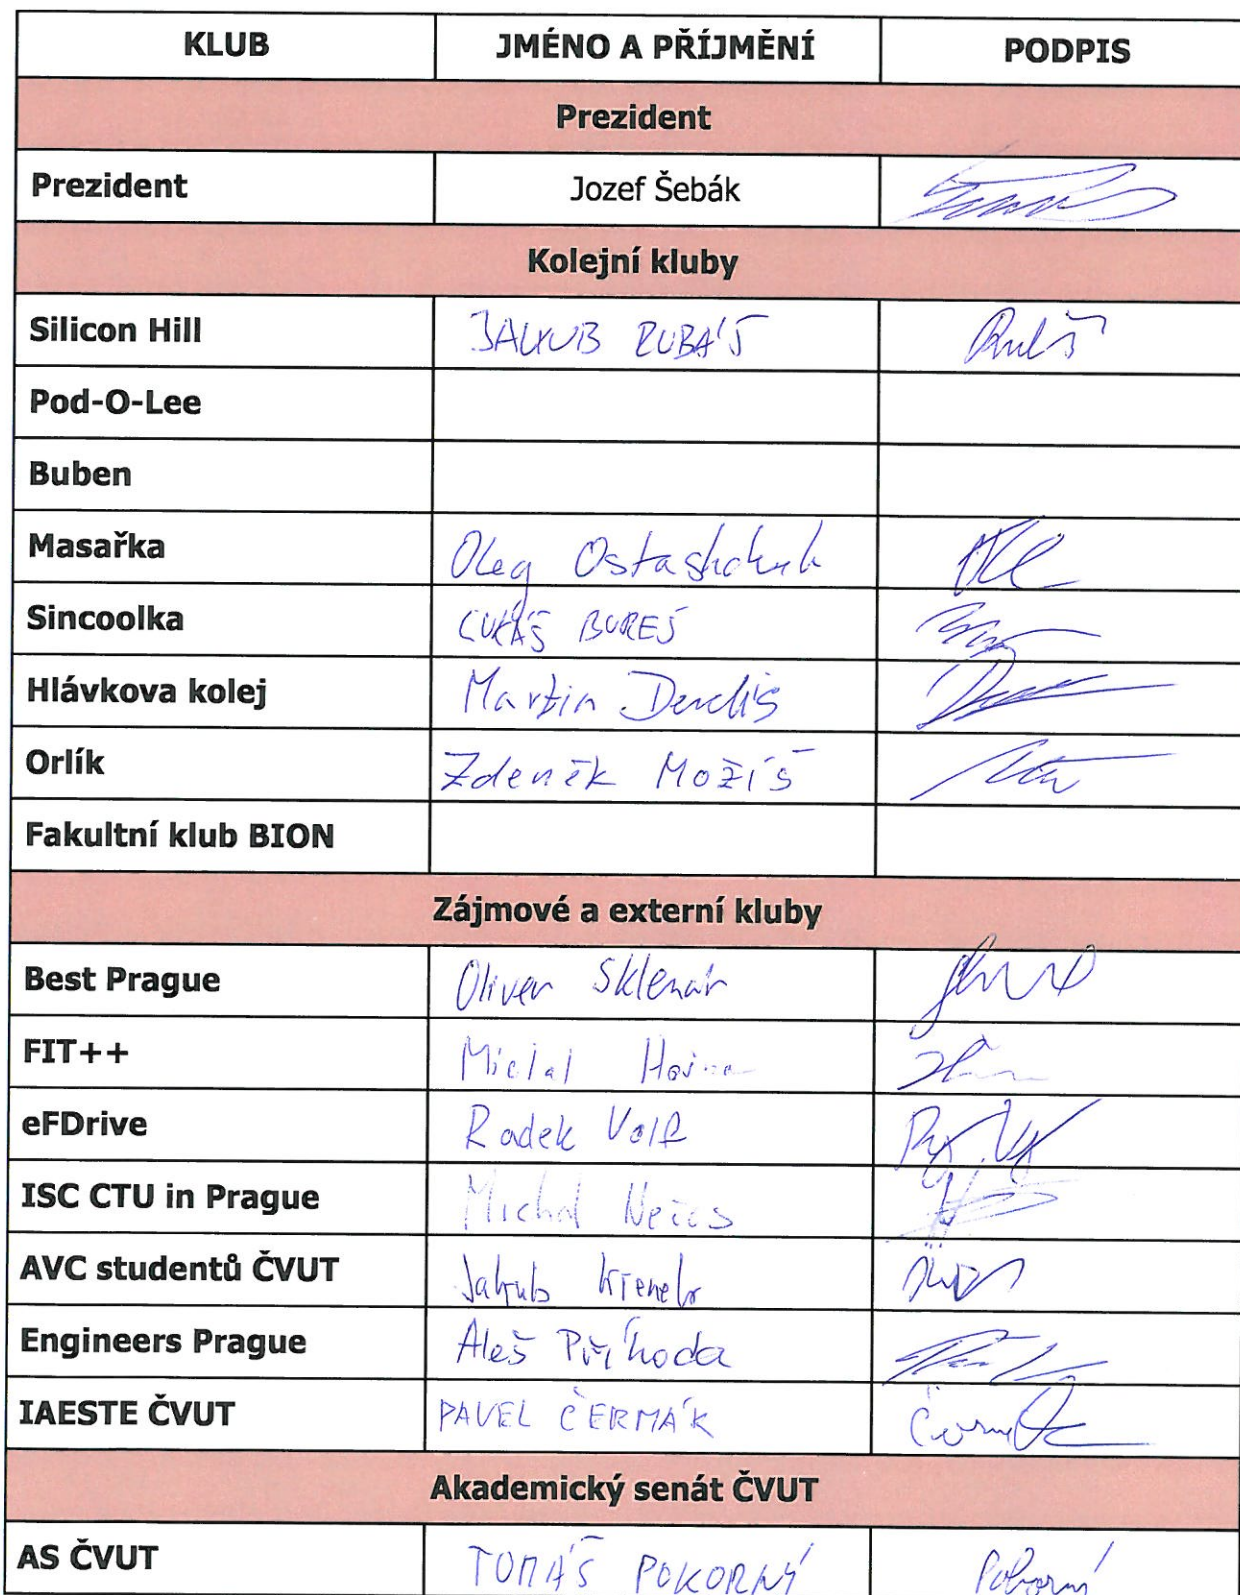 KLUB JMÉNO A PŘÍJMĚNÍ PODPIS
Prezident
Prezident Jozef Šebák
Kolejní kluby
Silicon Hill JAKUB RUBÁŠ
Pod-O-Lee
Buben
Masařka Oleg Ostashchuk
Sincoolka LUKÁŠ BUREŠ
Hlávkova kolej Martin
Orlík Zdeněk Možíš
Fakultní klub BION
Zájmové a externí kluby
Best Prague Oliver Sklenár
FIT++ Michal
eFDrive Radek Volf
ISC CTU in Prague Michal
AVC studentů ČVUT Jakub
Engineers Prague Aleš Příhoda
IAESTE ČVUT PAVEL ČERMÁK
Akademický senát ČVUT
AS ČVUT TOMÁŠ POKORNÝ